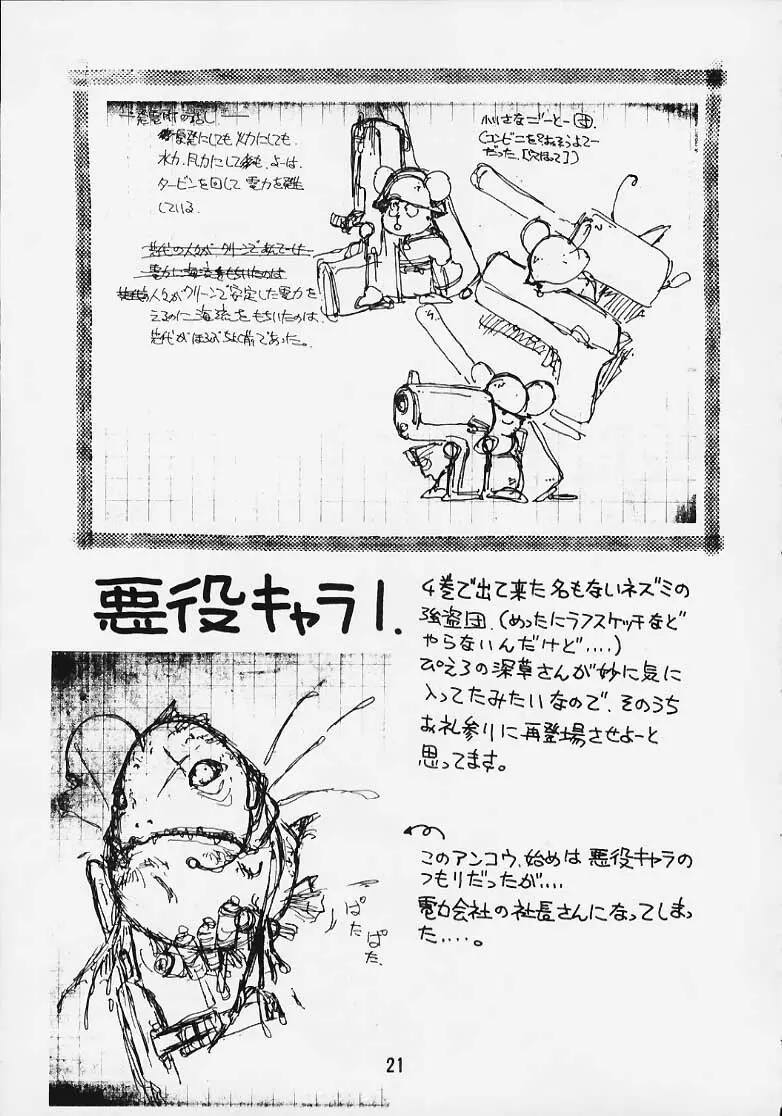 発電所の話し
発にしても火力にしても、
水力、風力にしても、よーは、
タービンを回して電力を発
している。
人々がクリーンで安定した電力を
えるのに海流をもちいたのは、
であった。
小さなごーとー団。
(コンビニをおそうよてー
だった。[穴ほって])
悪役キャラ1.
4巻で出て来た名もないネズミの
強盗団。(めったにラフスケッチなど
やらないんだけど....)
ぴえろの深草さんが妙に気に
入ってたみたいなので、そのうち
お礼参りに再登場させよーと
思ってます。
このアンコウ、始めは悪役キャラの
つもりだったが....
電力会社の社長さんになってしまっ
た....。
ぱた
ぱた
21